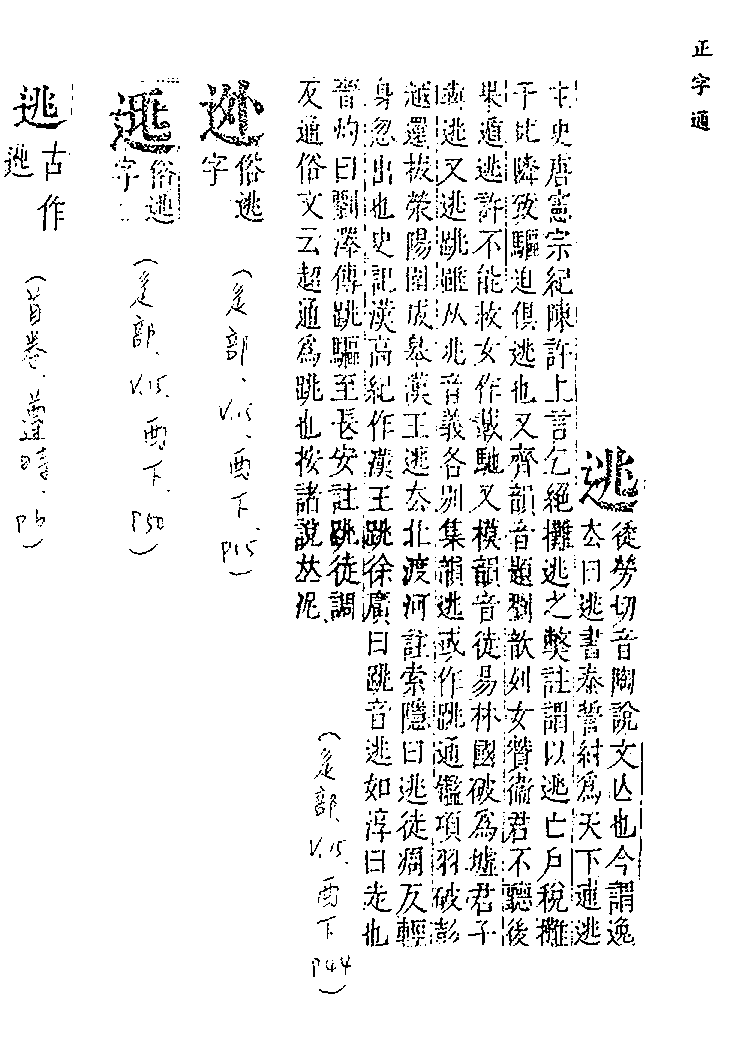 正字通
逃
徒勞切音陶說文亾也今謂逸
去曰逃書泰誓紂爲天下逋逃
主史唐憲宗紀陳許上言乞絕攤逃之獘註謂以逃亡戶稅攤
于比隣致驅迫俱逃也又齊韻音題劉歆列女贊衞君不聽後
果遁逃許不能救女作載馳又模韻音徒易林國破爲墟君子
奔逃又逃跳雖从兆音義各别集韻逃或作跳通鑑項羽破彭
越還拔滎陽圍成皋漢王逃去北渡河註索隱曰逃徒凋反輕
身忽出也史記漢高紀作漢王跳徐廣曰跳音逃如淳曰走也
晉灼曰劉澤傳跳驅至長安註跳徒調
反通俗文云超通爲跳也按諸說㚁泥
(辵部、V.15、酉下 P44)
俗逃
字
(辵部、V.15、酉下、P15)
俗逃
字
(辵部、V.15、酉下、P50)
逃
古作
(首卷、P6)